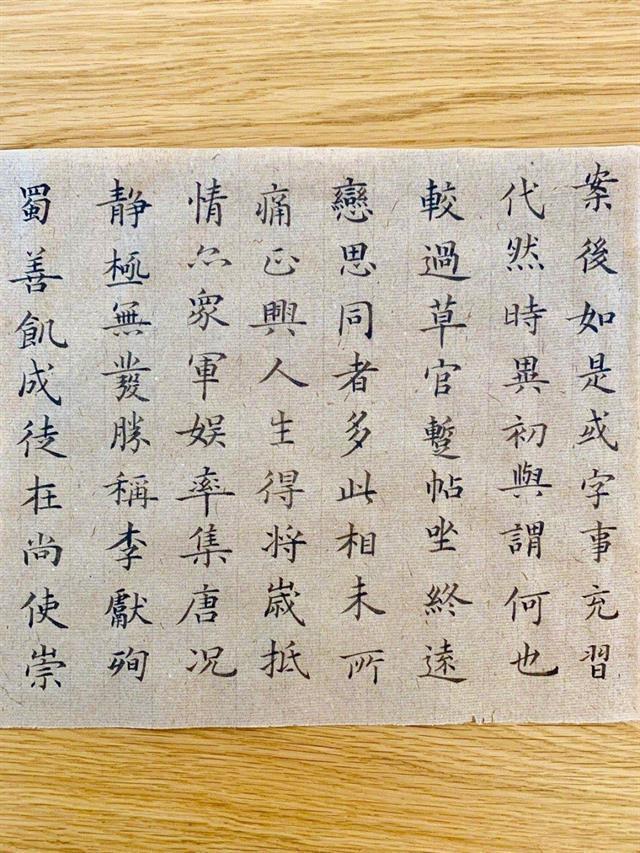 案後如是或字事充習
代然時異初與謂何也
較過草官蹔帖坐終遠
戀思同者多此相未所
痛正興人生得将歲抵
情尒眾軍娱率集唐况
静極無發勝稱李獻殉
蜀善飢成徒在尚使崇